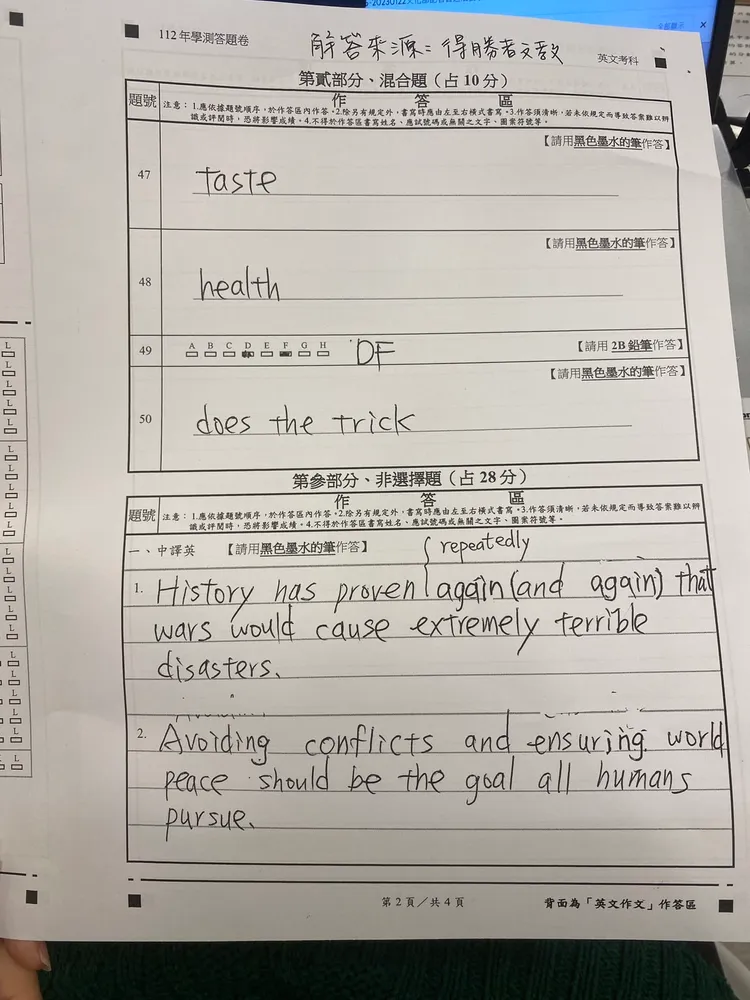 112年學測答題卷
解答來源：得勝者文教
英文考科
第貳部分、混合題（占10分）
題號
作 答 區
注意：1.應依據題號順序，於作答區內作答。2.除另有規定外，書寫時應由左至右橫式書寫。3.作答須清晰，若未依規定而導致答案難以辨
識或評閱時，恐將影響成績。4.不得於作答區書寫姓名、應試號碼或無關之文字、圖案符號等。
【請用黑色墨水的筆作答】
47
taste
【請用黑色墨水的筆作答】
48
health
49
A B C D E F G H
DF
【請用 2B 鉛筆作答】
【請用黑色墨水的筆作答】
50
does the trick
第參部分、非選擇題（占28分）
題號
作 答 區
注意：1.應依據題號順序，於作答區內作答。2.除另有規定外，書寫時應由左至右橫式書寫。3.作答須清晰，若未依規定而導致答案難以辨
識或評閱時，恐將影響成績。4.不得於作答區書寫姓名、應試號碼或無關之文字、圖案符號等。
一、中譯英 【請用黑色墨水的筆作答】
repeatedly
1. History has proven again (and again) that
wars would cause extremely terrible
disasters.
2. Avoiding conflicts and ensuring world
peace should be the goal all humans
pursue.
第 2 頁／共 4 頁
背面為「英文作文」作答區